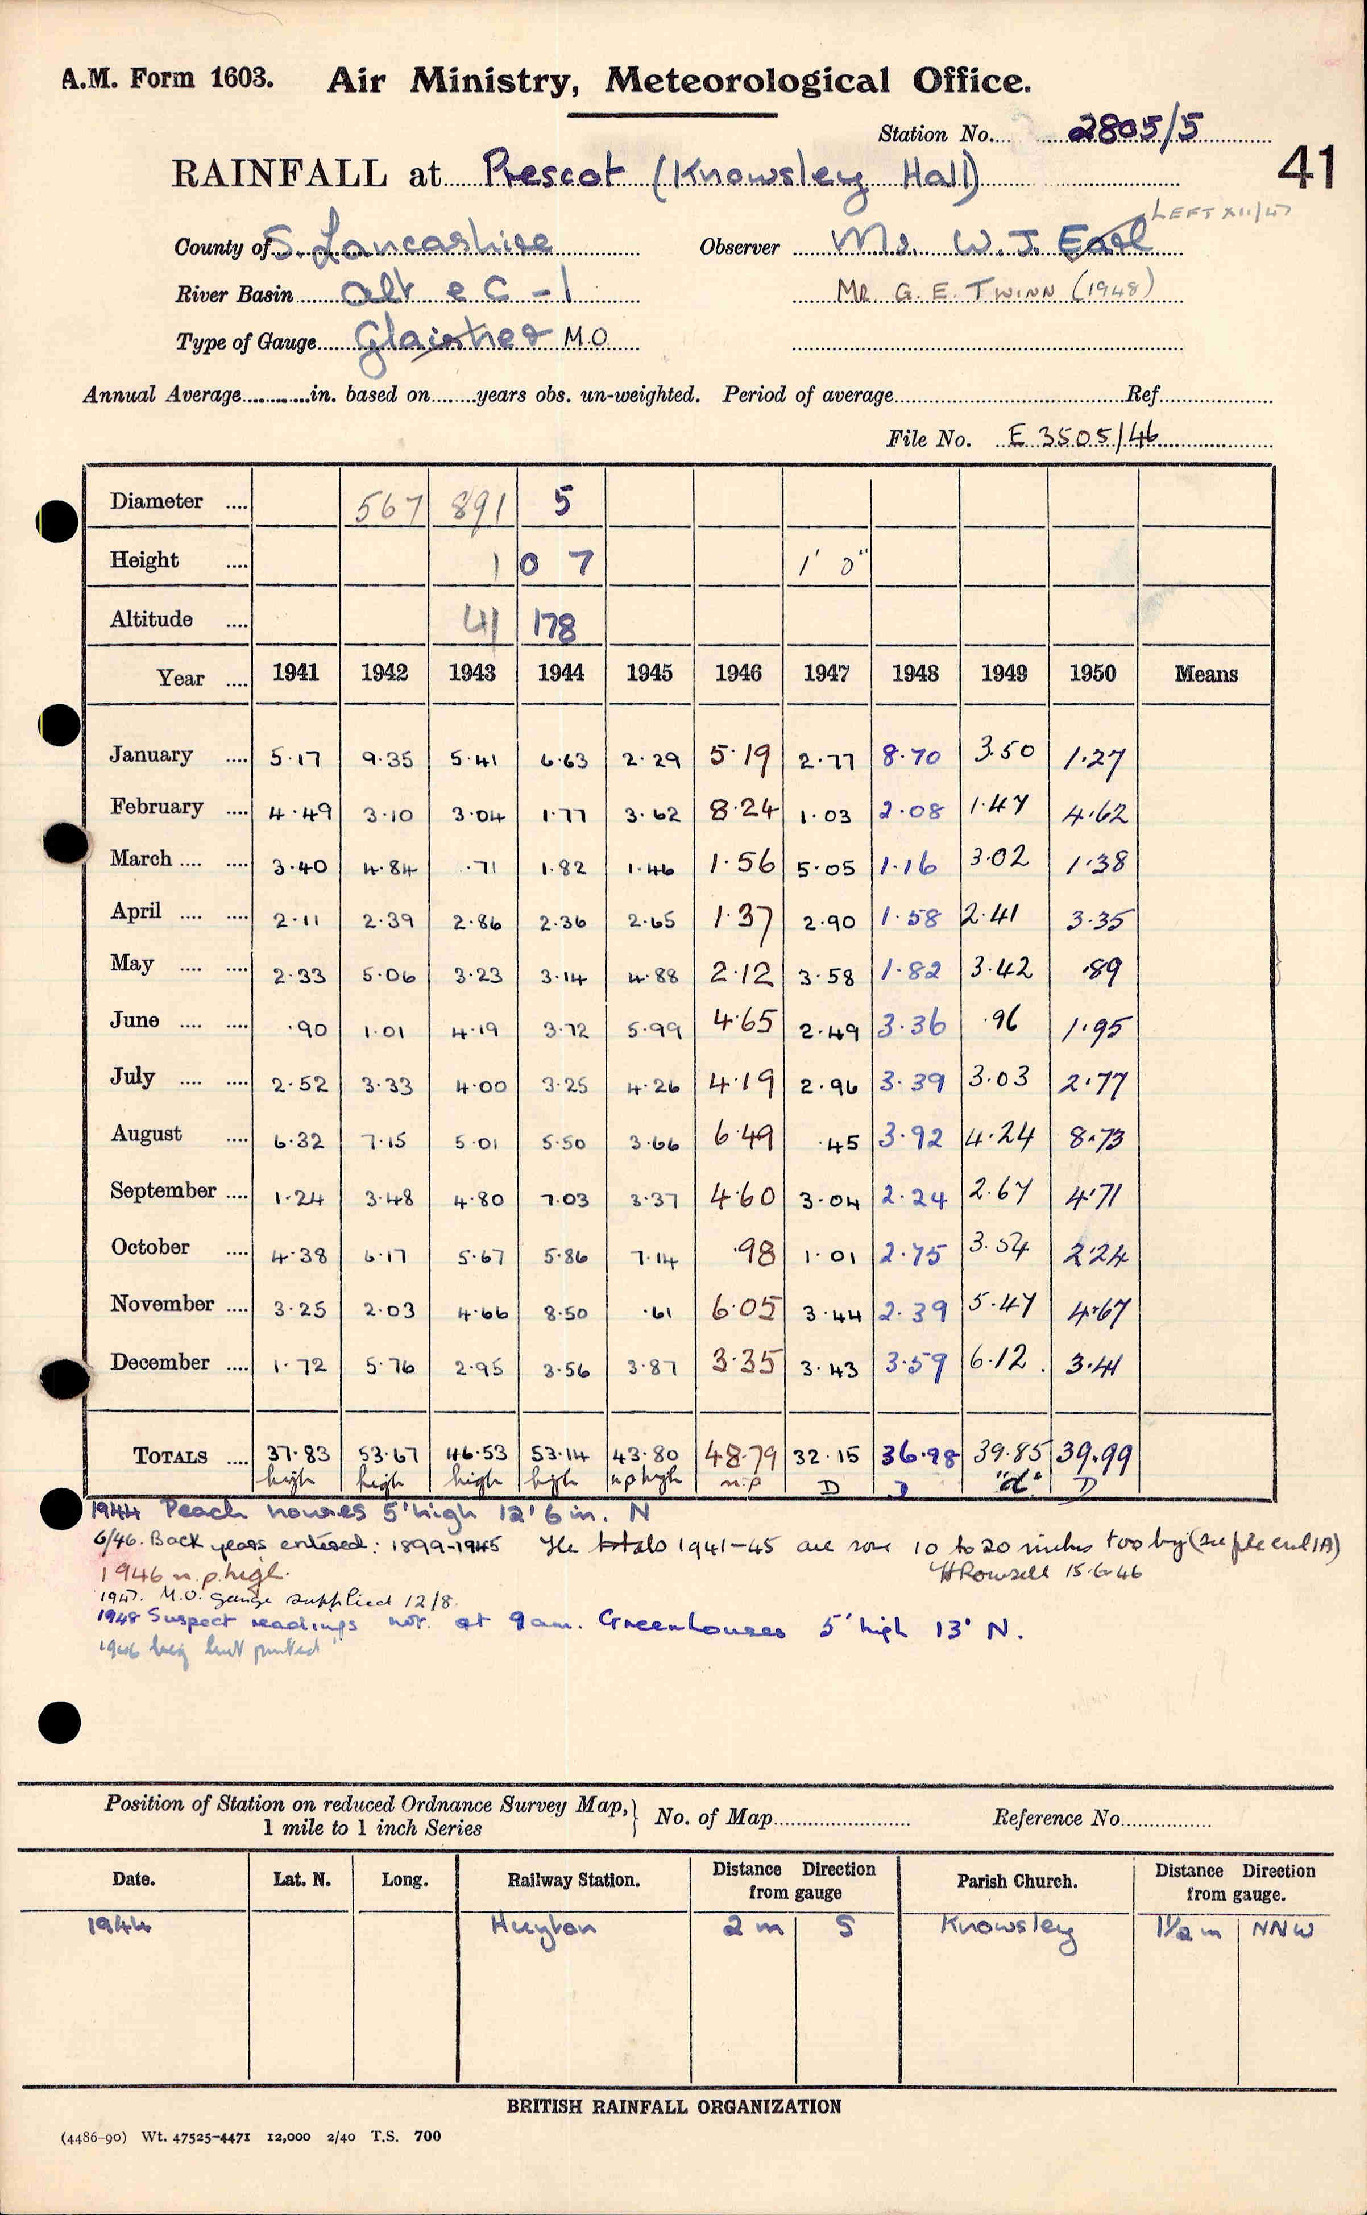 A.M. Form 1603. Air Ministry, Meteorological Office.
Station No. 2805/5
41
RAINFALL at Prescot (Knowsley Hall)
LEFT XII/47
County of S. Lancashire Observer Mr. W. J. Earl
River Basin Alt e C - 1 Mr. G. E. Twinn (1948)
Type of Gauge Glaisher M.O
Annual Average in. based on years obs. un-weighted. Period of average Ref
File No. E 3505/46
Diameter 567 891 5
Height 1 0 7 1' 0"
Altitude 41 178
Year 1941 1942 1943 1944 1945 1946 1947 1948 1949 1950 Means
January 5.17 9.35 5.41 6.63 2.29 5.19 2.77 8.70 3.50 1.27
February 4.49 3.10 3.04 1.77 3.62 8.24 1.03 2.08 1.47 4.62
March 3.40 4.84 .71 1.82 1.46 1.56 5.05 1.16 3.02 1.38
April 2.11 2.39 2.86 2.36 2.65 1.37 2.90 1.58 2.41 3.35
May 2.33 5.06 3.23 3.14 4.88 2.12 3.58 1.82 3.42 .89
June .90 1.01 4.19 3.72 5.99 4.65 2.49 3.36 .96 1.95
July 2.52 3.33 4.00 3.25 4.26 4.19 2.96 3.39 3.03 2.77
August 6.32 7.15 5.01 5.50 3.66 6.49 .45 3.92 4.24 8.73
September 1.24 3.48 4.80 7.03 3.37 4.60 3.04 2.24 2.67 4.71
October 4.38 6.17 5.67 5.86 7.14 .98 1.01 2.75 3.54 2.24
November 3.25 2.03 4.66 8.50 .61 6.05 3.44 2.39 5.47 4.67
December 1.72 5.76 2.95 3.56 3.87 3.35 3.43 3.59 6.12 3.41
TOTALS 37.83 53.67 46.53 53.14 43.80 48.79 32.15 36.98 39.85 39.99
high high high high n p high n.p D D "d" D
1944 Peach houses 5' high 12' 6 in. N
6/46. Back years entered: 1899-1945 The totals 1941-45 are some 10 to 20 inches too big (see file encl 1A)
1946 n.p. high. H Rowsell 15.6.46
1947. M.O. gauge supplied 12/8.
1948 Suspect readings not at 9am. Greenhouses 5' high 13' N.
1946 big but printed
Position of Station on reduced Ordnance Survey Map, 1 mile to 1 inch Series No. of Map Reference No.
Date. Lat. N. Long. Railway Station. Distance Direction from gauge Parish Church. Distance Direction from gauge.
1944 Huyton 2 m S Knowsley 1½ m NNW
BRITISH RAINFALL ORGANIZATION
(4486-90) Wt. 47525-4471 12,000 2/40 T.S. 700